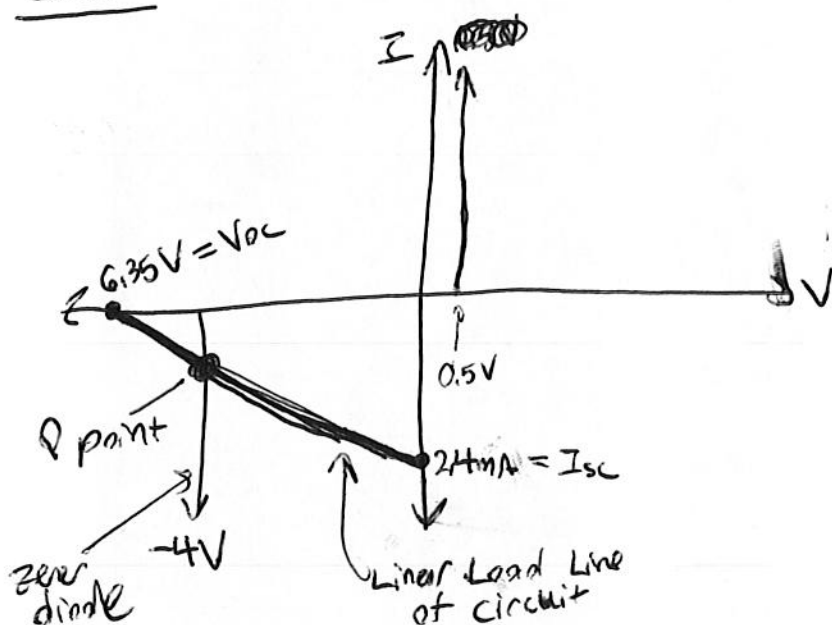 I
6.35V = Voc
V
0.5V
Q point
24mA = Isc
-4V
zener
diode
Linear Load Line
of circuit